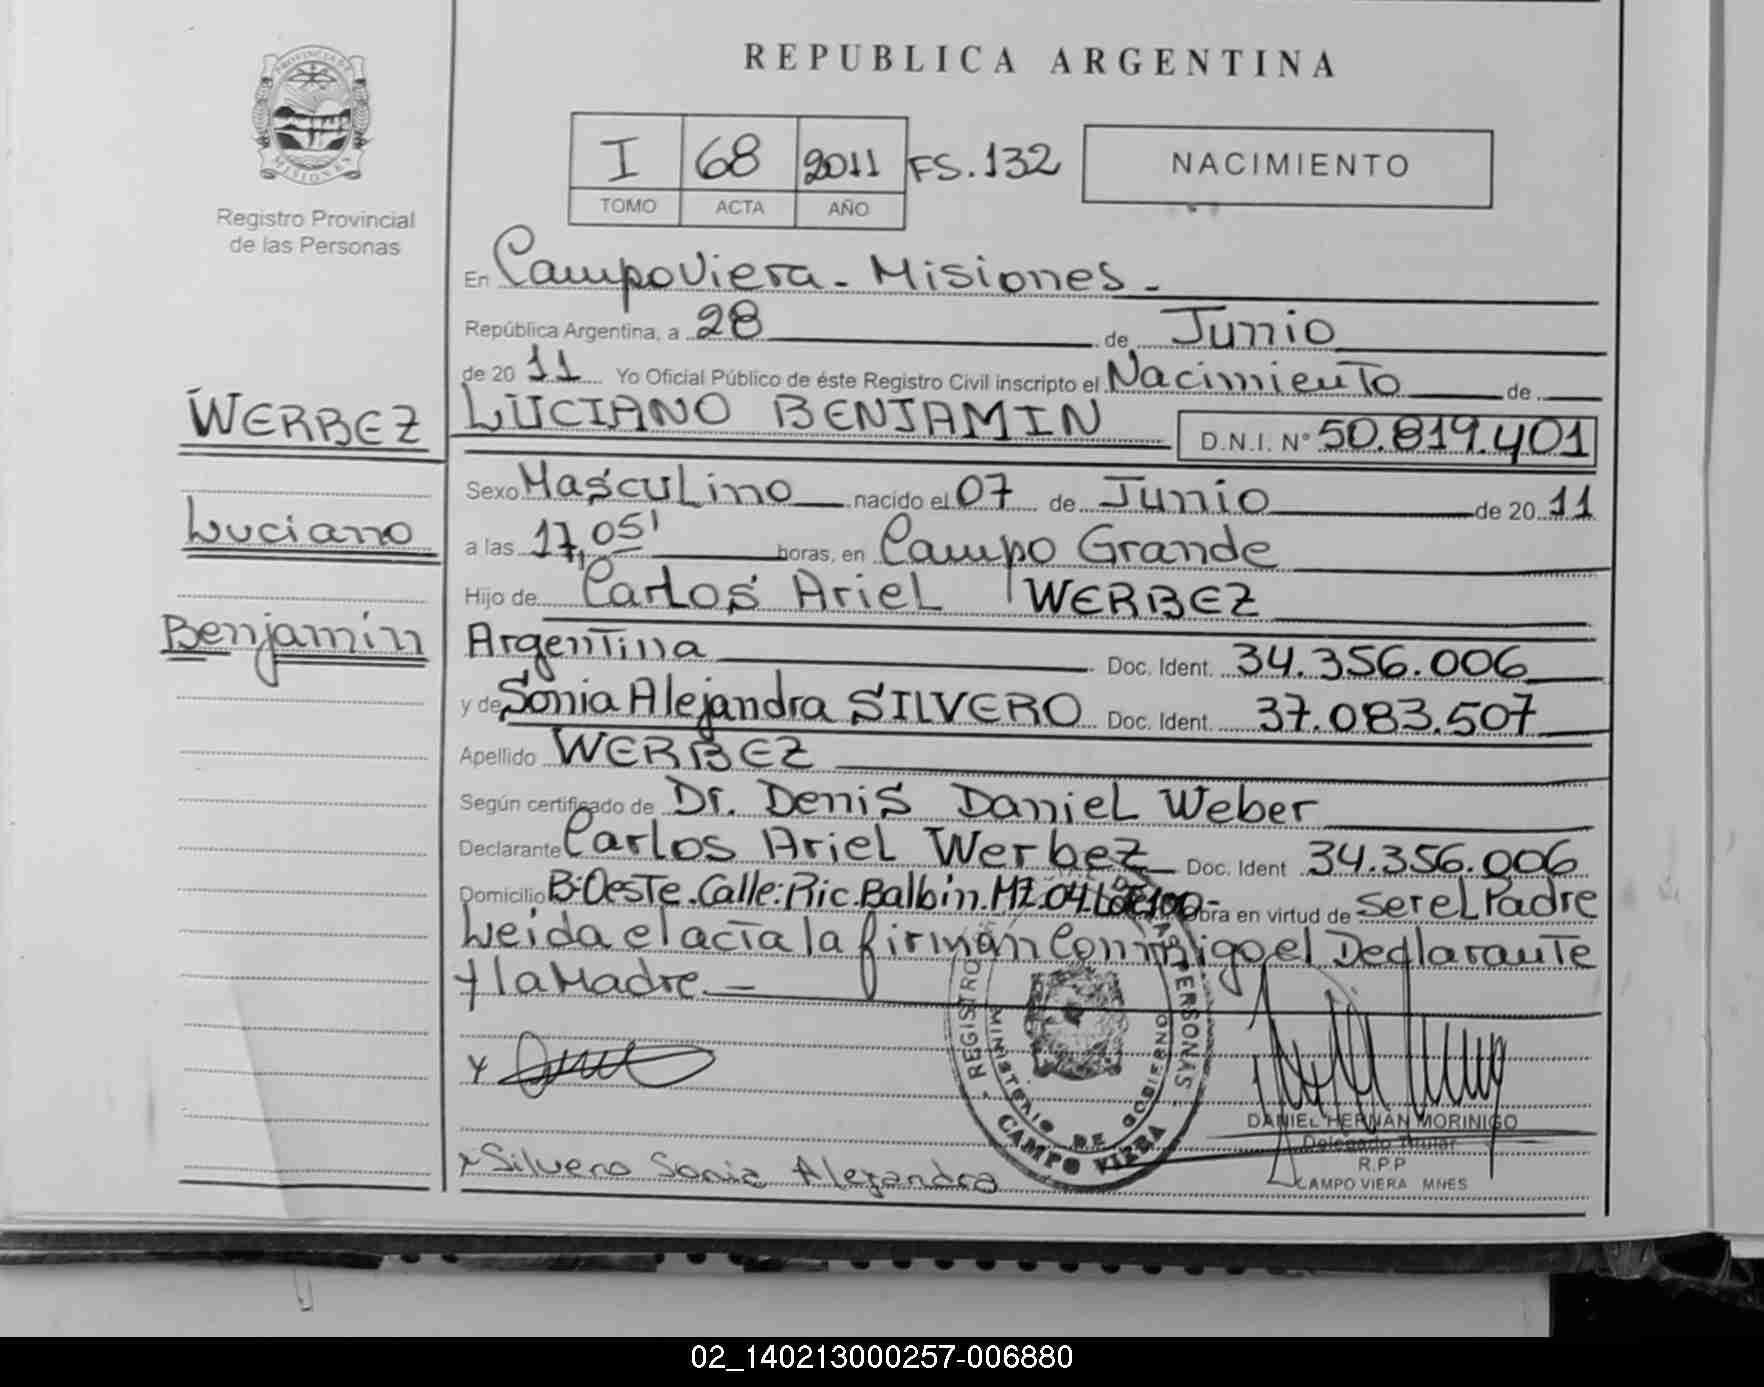 PROVINCIA DE
MISIONES
Registro Provincial
de las Personas
WERBEZ
Luciano
Benjamín
REPUBLICA ARGENTINA
I 68 2011 FS.132
TOMO ACTA AÑO
NACIMIENTO
En Campo Viera - Misiones -
República Argentina, a 28 de Junio
de 20 11 Yo Oficial Público de éste Registro Civil inscripto el Nacimiento de
LUCIANO BENJAMIN D.N.I. N° 50.819.401
Sexo Masculino nacido el 07 de Junio de 20 11
a las 17,05' horas, en Campo Grande
Hijo de Carlos Ariel WERBEZ
Argentina Doc. Ident. 34.356.006
y de Sonia Alejandra SILVERO Doc. Ident. 37.083.507
Apellido WERBEZ
Según certificado de Dr. Denis Daniel Weber
Declarante Carlos Ariel Werbez Doc. Ident 34.356.006
Domicilio B: Oeste. Calle: Ric. Balbin. MZ.04. Obra en virtud de ser el Padre
Leida el acta la firman Conmigo el Declarante
y la Madre
REGISTRO PERSONAS
MINISTERIO DE GOBIERNO
CAMPO VIERA
DANIEL HERNÁN MORINIGO
Delegado Titular
R.P.P
CAMPO VIERA MNES
x Silvero Sonia Alejandra
02_140213000257-006880